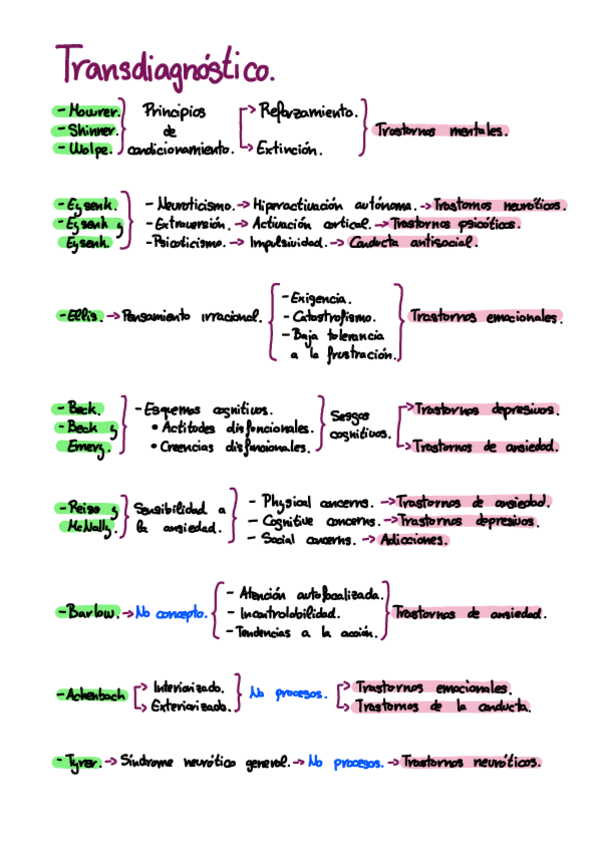 Transdiagnóstico.
- Mowrer. Principios → Reforzamiento.
- Skinner. de Trastornos mentales.
- Wolpe. condicionamiento. → Extinción.
- Eysenk. - Neuroticismo. → Hiperactivación autónoma. → Trastornos neuróticos.
- Eysenk y - Extraversión. → Activación cortical. → Trastornos psicóticos.
Eysenk. - Psicoticismo. → Impulsividad. → Conducta antisocial.
- Exigencia.
- Ellis. → Pensamiento irracional. - Catastrofismo. Trastornos emocionales.
- Baja tolerancia
a la frustración.
- Beck. - Esquemas cognitivos. → Trastornos depresivos.
- Beck y • Actitudes disfuncionales. Sesgos
Emery. • Creencias disfuncionales. cognitivos. → Trastornos de ansiedad.
- Reiss y Sensibilidad a - Physical concerns. → Trastornos de ansiedad.
McNally. la ansiedad. - Cognitive concerns. → Trastornos depresivos.
- Social concerns. → Adicciones.
- Atención autofocalizada.
- Barlow. → No concepto. - Incontrolabilidad. Trastornos de ansiedad.
- Tendencias a la acción.
- Achenbach → Interiorizado. No procesos. → Trastornos emocionales.
→ Exteriorizado. → Trastornos de la conducta.
- Tyrer. → Síndrome neurótico general. → No procesos. → Trastornos neuróticos.